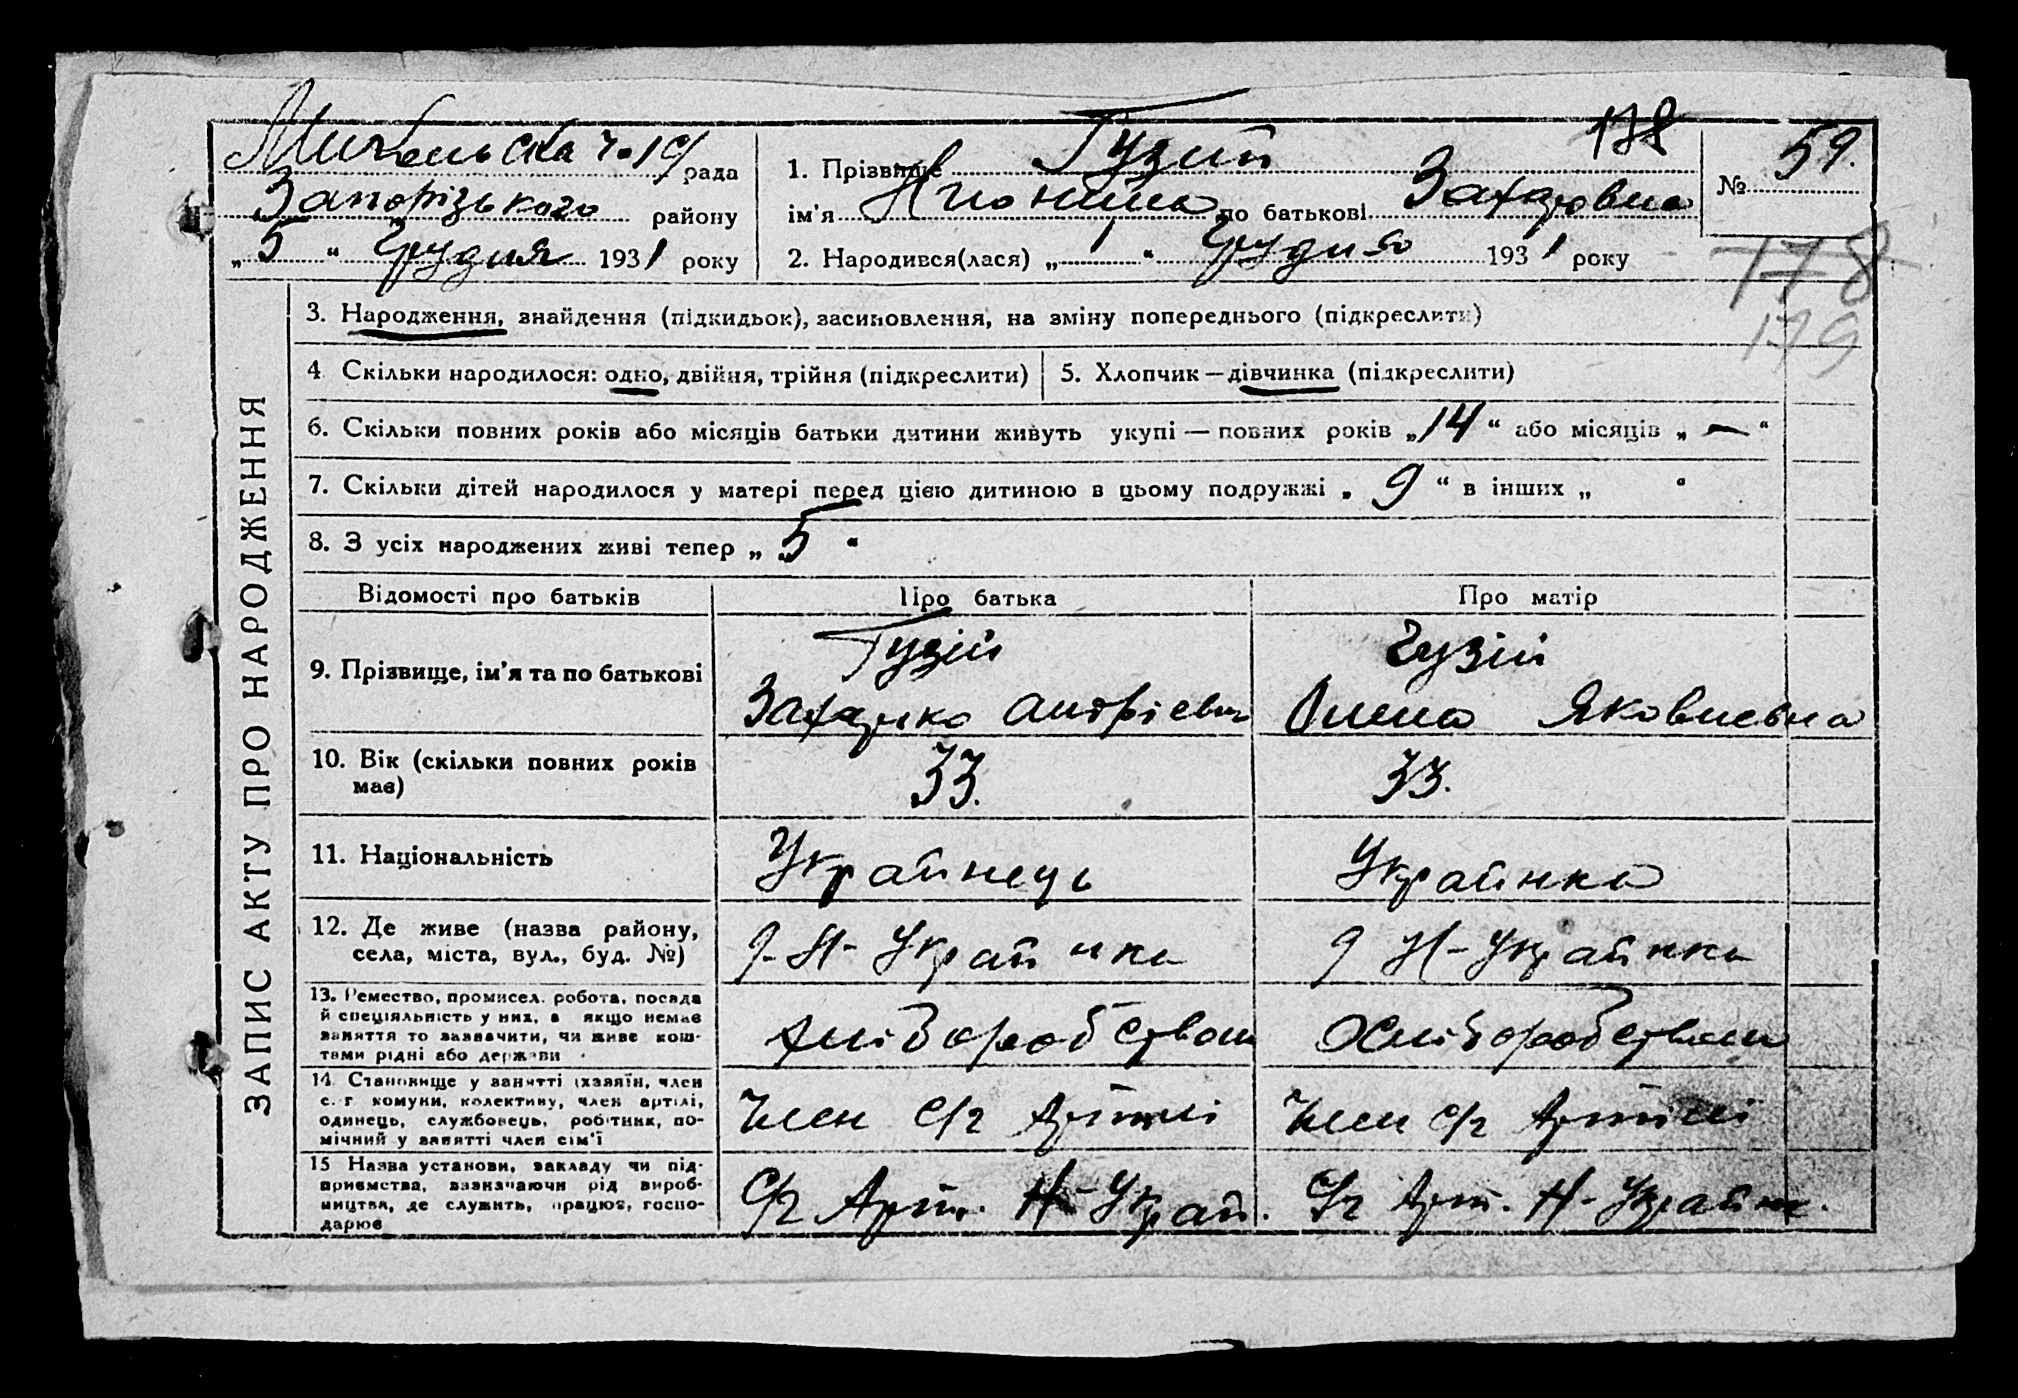 рада
Запорізького району
„ 5 “ Грудня 1931 року
1. Прізвище Гузій
ім’я по батькові Захаровна
2. Народився(лася) „ 1 “ Грудня 1931 року
178
№ 59.
178
179
ЗАПИС АКТУ ПРО НАРОДЖЕННЯ
3. Народження, знайдення (підкидьок), засиновлення, на зміну попереднього (підкреслити)
4 Скільки народилося: одно, двійня, трійня (підкреслити)
5. Хлопчик — дівчинка (підкреслити)
6. Скільки повних років або місяців батьки дитини живуть укупі — повних років „ 14 “ або місяців „ — “
7. Скільки дітей народилося у матері перед цією дитиною в цьому подружжі „ 9 “ в інших „ “
8. З усіх народжених живі тепер „ 5 “
Відомості про батьків Про батька Про матір
9. Прізвище, ім’я та по батькові
Гузій
Захарко Андрієвич
Гузій
Олена Яковлевна
10. Вік (скільки повних років має)
33.
33.
11. Національність
Українець
Українка
12. Де живе (назва району,
села, міста, вул., буд. №)
Н-Українка
Н-Українка
13. Ремество, промисел, робота, посада
й спеціяльність у них, а якщо немає
заняття то зазначити, чи живе кош-
тами рідні або держави
Хліборобством
Хліборобством
14. Становище у занятті (хазяїн, член
с. г комуни, колективу, член артілі,
одинець, службовець, робітник, по-
мічний у занятті член сім’ї
Член с/г Артілі
Член с/г Артілі
15 Назва установи, закладу чи під-
приємства, зазначаючи рід вироб-
ництва, де служить, працює, госпо-
дарює
С/г Арт. Н-Украй.
С/г Арт. Н-Українк.